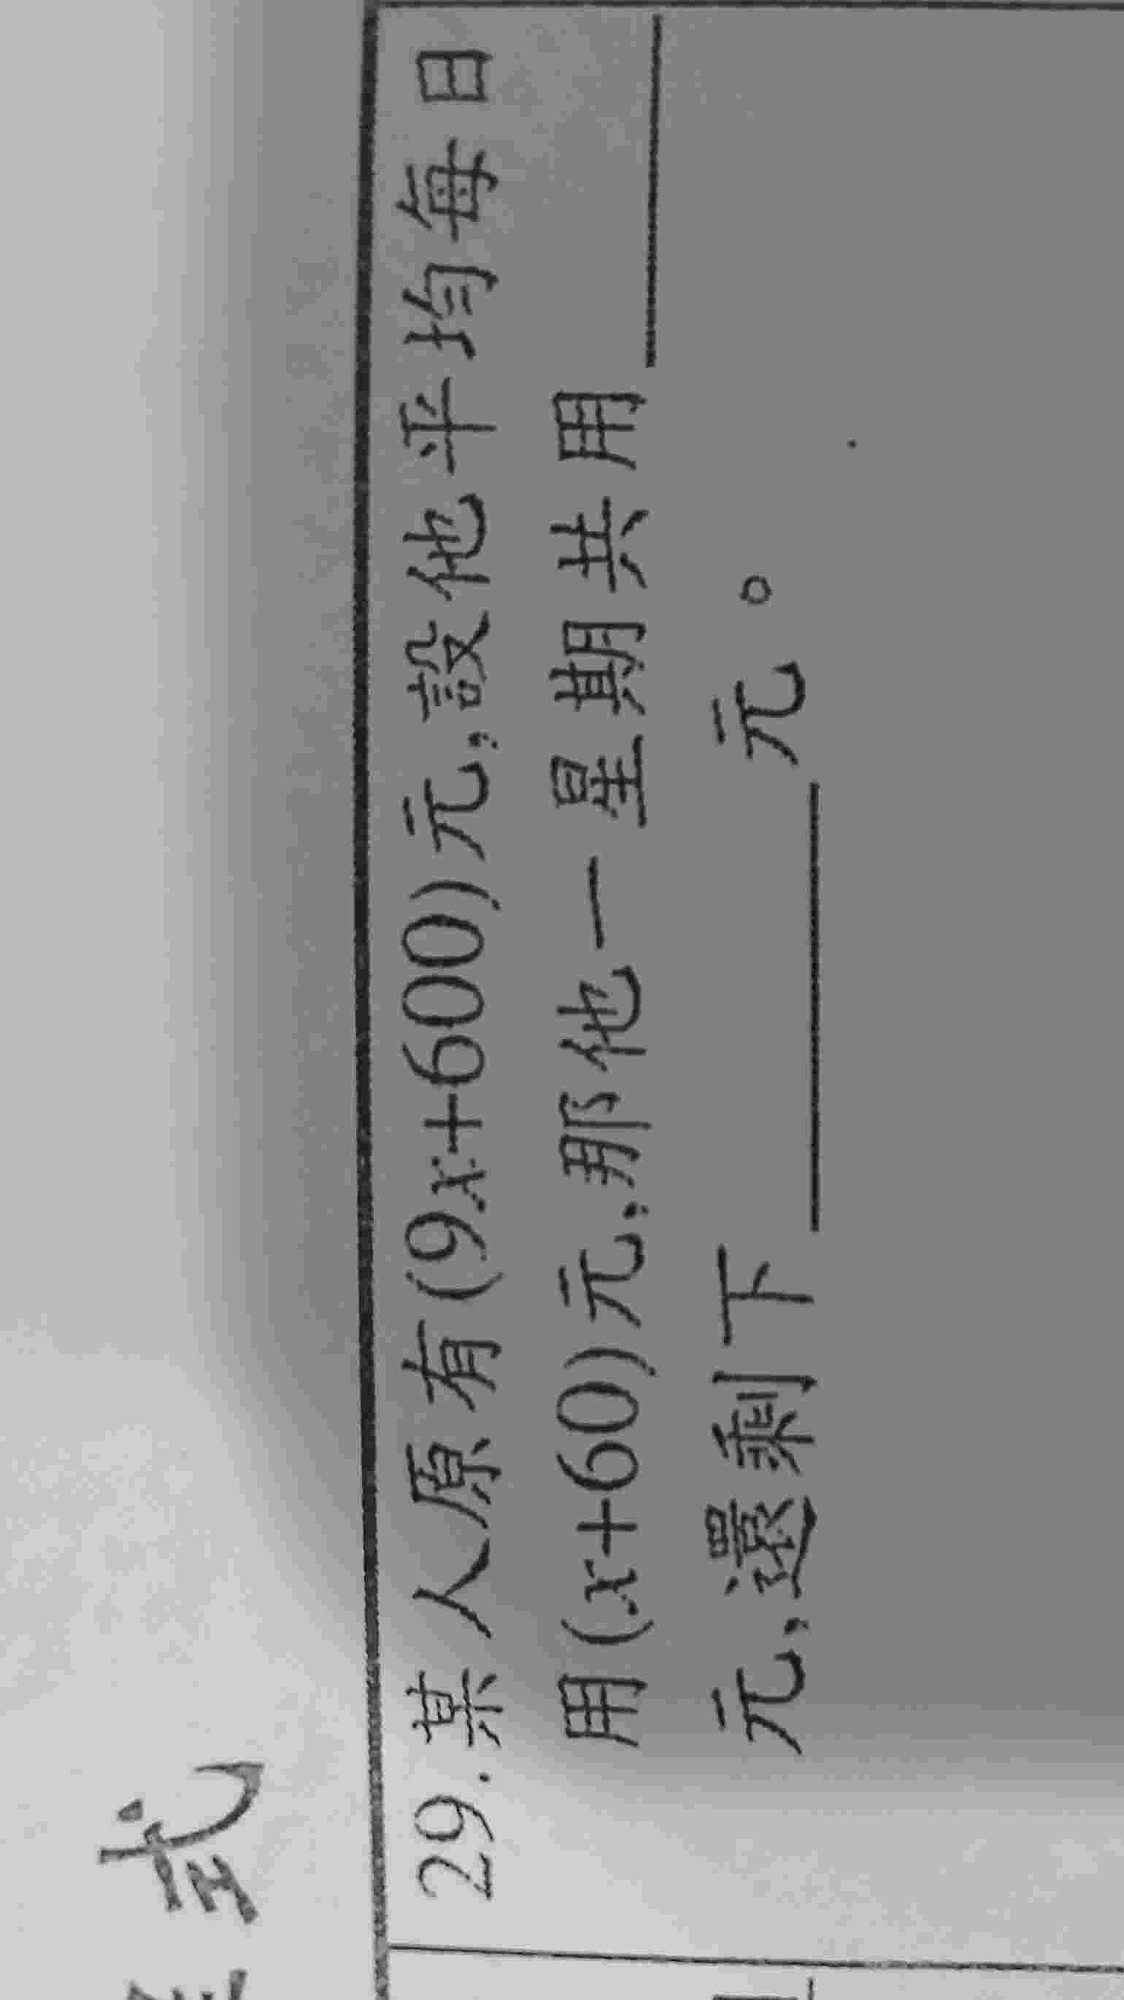 式
29.某人原有(9x+600)元,設他平均每日
用(x+60)元,那他一星期共用______
元,還剩下______元。